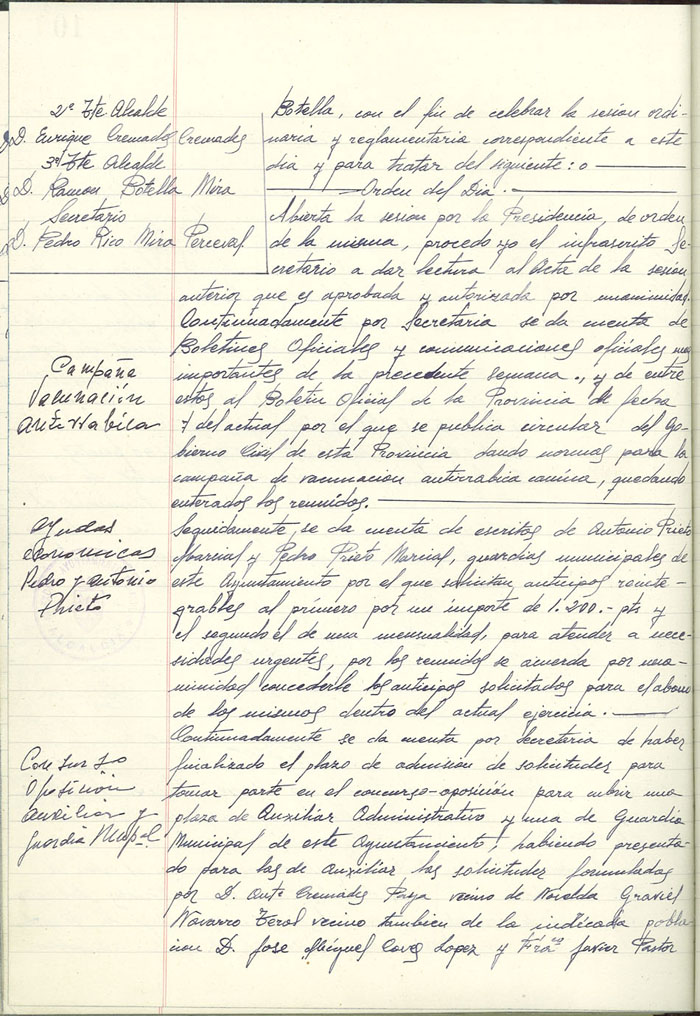 2º Tte Alcalde
D. Enrique Cremades Cremades
3º Tte Alcalde
D. Ramon Botella Mira
Secretario
D. Pedro Rico Mira Perceval
Botella, con el fin de celebrar la sesion ordi-
naria y reglamentaria correspondiente a este
dia y para tratar del siguiente: o
Orden del Dia.
Abierta la sesion por la Presidencia, de orden
de la misma, procedo yo el infrascrito Se-
cretario a dar lectura al Acta de la sesion
anterior que es aprobada y autorizada por unanimidad.
Continuadamente por Secretaria se da cuenta de
Boletines Oficiales y comunicaciones oficiales mas
importantes de la precedente semana., y de entre
estos al Boletin Oficial de la Provincia de fecha
7 del actual por el que se publica circular del Go-
bierno Civil de esta Provincia dando normas para la
campaña de vacunacion antirrabica canina, quedando
enterados los reunidos.
Campaña
Vacunación
antirrabica
Seguidamente, se da cuenta de escritos de Antonio Prieto
Marcial y Pedro Prieto Marcial, guardias municipales de
este Ayuntamiento por el que solicitan anticipos reinte-
grables al primero por un importe de 1.200.- pts y
el segundo él de una mensualidad, para atender a nece-
sidades urgentes, por los reunidos se acuerda por una-
nimidad concederle los anticipos solicitados para el abono
de los mismos dentro del actual ejercicio.
Ayudas
economicas
Pedro y Antonio
Prieto
Continuadamente se da cuenta por Secretaria de haber
finalizado el plazo de admision de solicitudes para
tomar parte en el concurso-oposición para cubrir una
plaza de Auxiliar Administrativo y una de Guardia
Municipal de este Ayuntamiento, habiendo presenta-
do para las de Auxiliar las solicitudes formuladas
por D. Antº Cremades Paya vecino de Novelda Graviel
Navarro Terol vecino tambien de la indicada pobla-
cion D. Jose Miguel Caves Lopez y Franco Javier Pastor
Concurso
Oposición
auxiliar y
guardia Mupal.